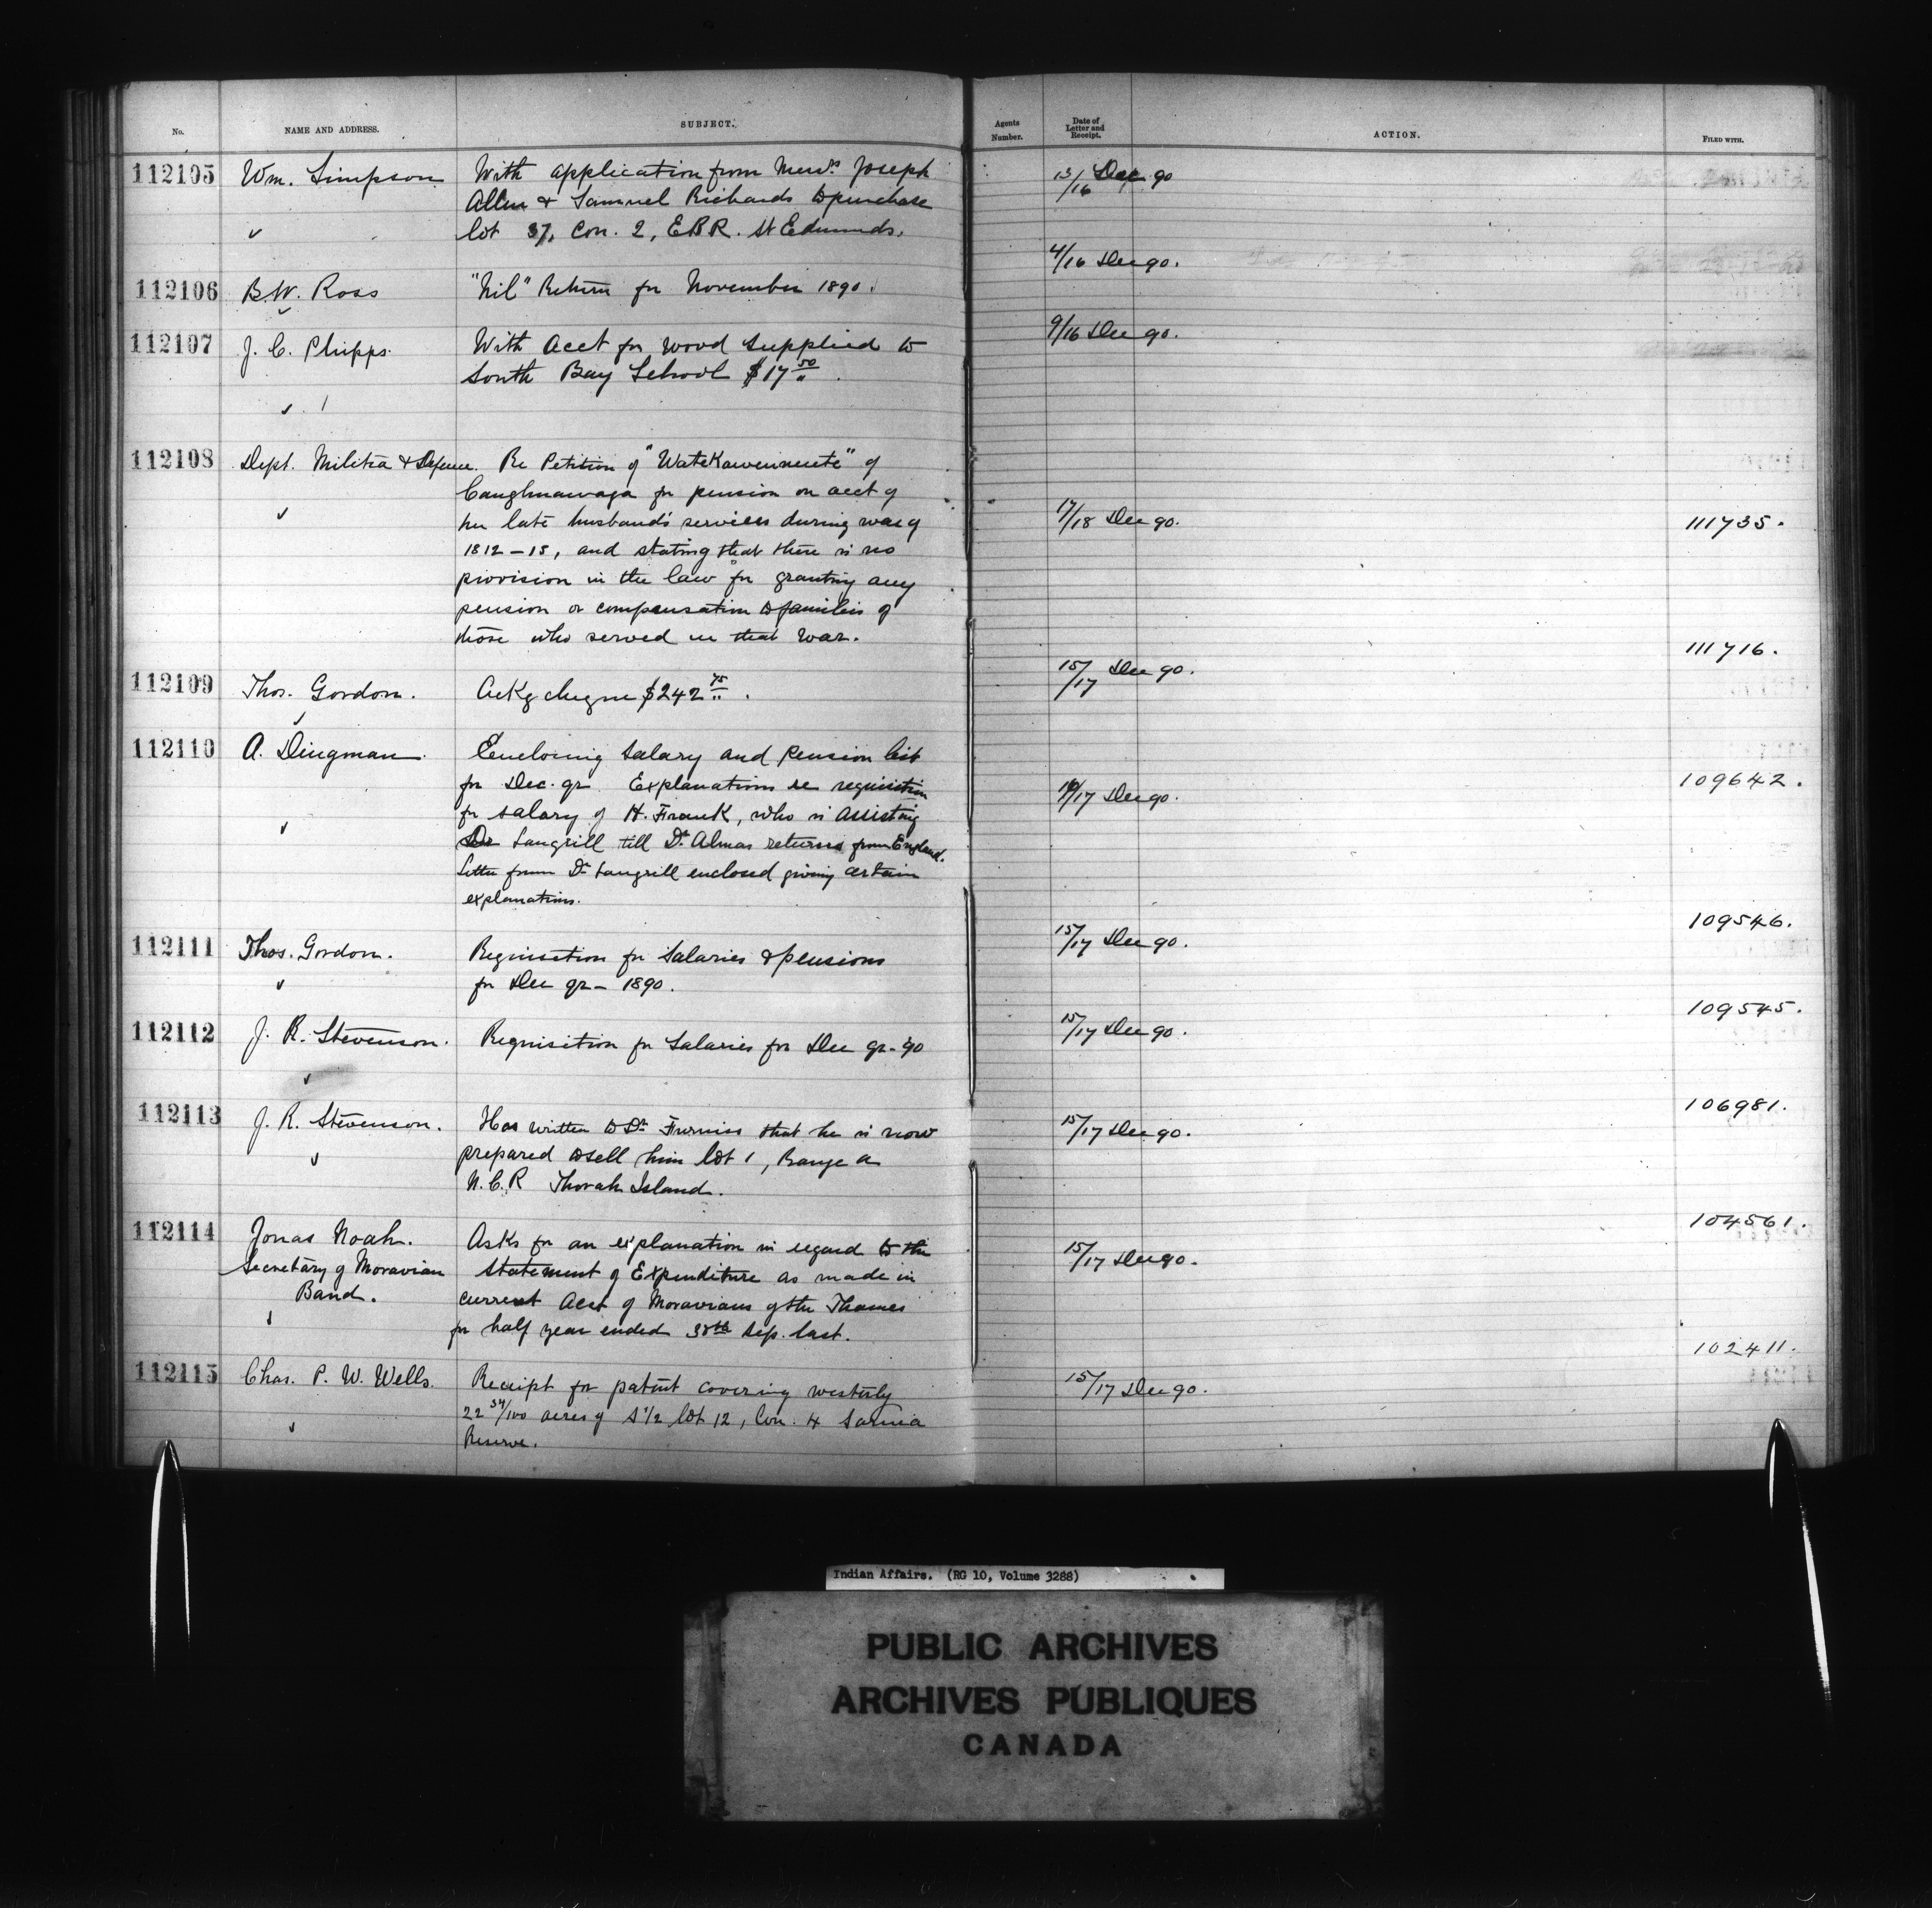 No. NAME AND ADDRESS. SUBJECT. Agents Number. Date of Letter and Receipt. ACTION. FILED WITH.
112105 Wm. Simpson With application from Messrs. Joseph 13/16 Dec 90
Allen & Samuel Richards to purchase
lot 37, Con. 2, E B R. St Edmunds.
112106 B.W. Ross "Nil" Return for November 1890. 4/16 Dec 90.
112107 J. C. Phipps. With Acct for wood supplied to 9/16 Dec 90.
South Bay School $17 50/"
112108 Dept. Militia & Defence. Re Petition of "Watekawennente" of
Caughnawaga for pension on acct of
her late husband's services during war of 17/18 Dec 90. 111735.
1812-15, and stating that there is no
provision in the law for granting any
pension or compensation to families of
those who served in that war.
112109 Thos. Gordon. Ackg cheque $242 75/". 15/17 Dec 90. 111716.
112110 A. Dingman. Enclosing Salary and Pension list
for Dec. qr. Explanations re requisition 17 Dec 90. 109642.
for salary of H. Frank, who is assisting
Dr Langrill till Dr. Almas returns from England.
Letter from Dr Langrill enclosed giving certain
explanations.
112111 Thos. Gordon. Requisition for Salaries & pensions 15/17 Dec 90. 109546.
for Dec qr - 1890.
112112 J. R. Stevenson. Requisition for Salaries for Dec qr - 90 15/17 Dec 90. 109545.
112113 J. R. Stevenson. Has written to Dr Furniss that he is now 15/17 Dec 90. 106981.
prepared to sell him lot 1, Range A
N. C. R Thorah Island.
112114 Jonas Noah. Asks for an explanation in regard to the 15/17 Dec 90. 104561.
Secretary of Moravian Statement of Expenditure as made in
Band. current Acct of Moravians of the Thames
for half year ended 30th Sep. last.
112115 Chas. P. W. Wells. Receipt for patent covering westerly 15/17 Dec 90. 102411.
22 34/100 acres of S 1/2 lot 12, Con. 4 Sarnia
Reserve.
Indian Affairs. (RG 10, Volume 3288)
PUBLIC ARCHIVES
ARCHIVES PUBLIQUES
CANADA